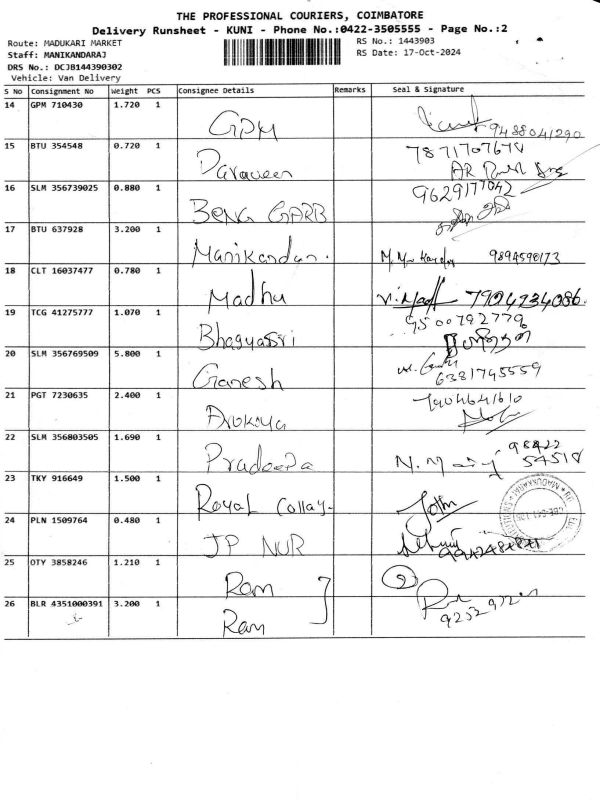 THE PROFESSIONAL COURIERS, COIMBATORE
Delivery Runsheet - KUNI - Phone No.:0422-3505555 - Page No.:2
Route: MADUKARI MARKET RS No.: 1443903
Staff: MANIKANDARAJ RS Date: 17-Oct-2024
DRS No.: DCJB144390302
Vehicle: Van Delivery
S No Consignment No Weight PCS Consignee Details Remarks Seal & Signature
14 GPM 710430 1.720 1 GPM 9488041290
15 BTU 354548 0.720 1 7871707678
16 SLM 356739025 0.880 1 BENG GARB 9629177042
17 BTU 637928 3.200 1 Manikandan. 9894590173
18 CLT 16037477 0.780 1 Madhu 7904734086
19 TCG 41275777 1.070 1 Bhagyassri 9500792776
20 SLM 356769509 5.800 1 Ganesh 6381745559
21 PGT 7230635 2.400 1 7904641610
22 SLM 356803505 1.690 1 Pradeepa 98422
54518
23 TKY 916649 1.500 1 Royal Collay.
24 PLN 1509764 0.480 1 JP NUR
25 OTY 3858246 1.210 1 Ram
26 BLR 4351000391 3.200 1 Ram